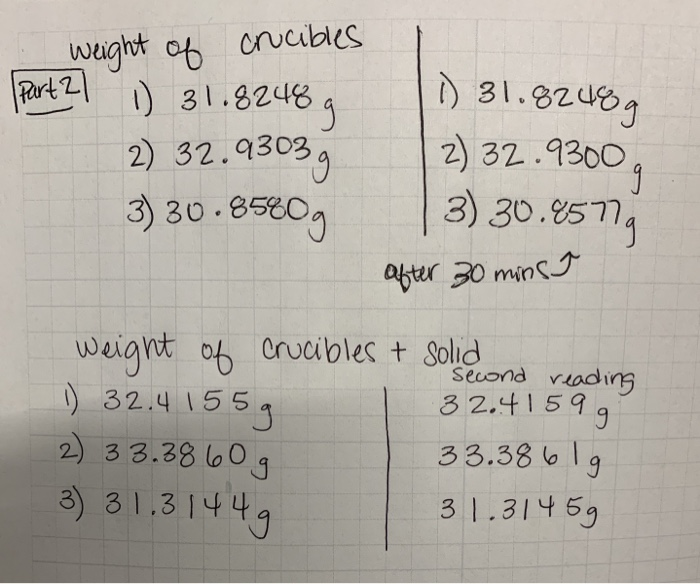 weight of crucibles
Part 2
1) 31.8248 g
2) 32.9303 g
3) 30.8580 g
1) 31.8248 g
2) 32.9300 g
3) 30.8577 g
after 30 mins ↑
weight of crucibles + solid
1) 32.4155 g
2) 33.3860 g
3) 31.3144 g
second reading
32.4159 g
33.3861 g
31.3145 g